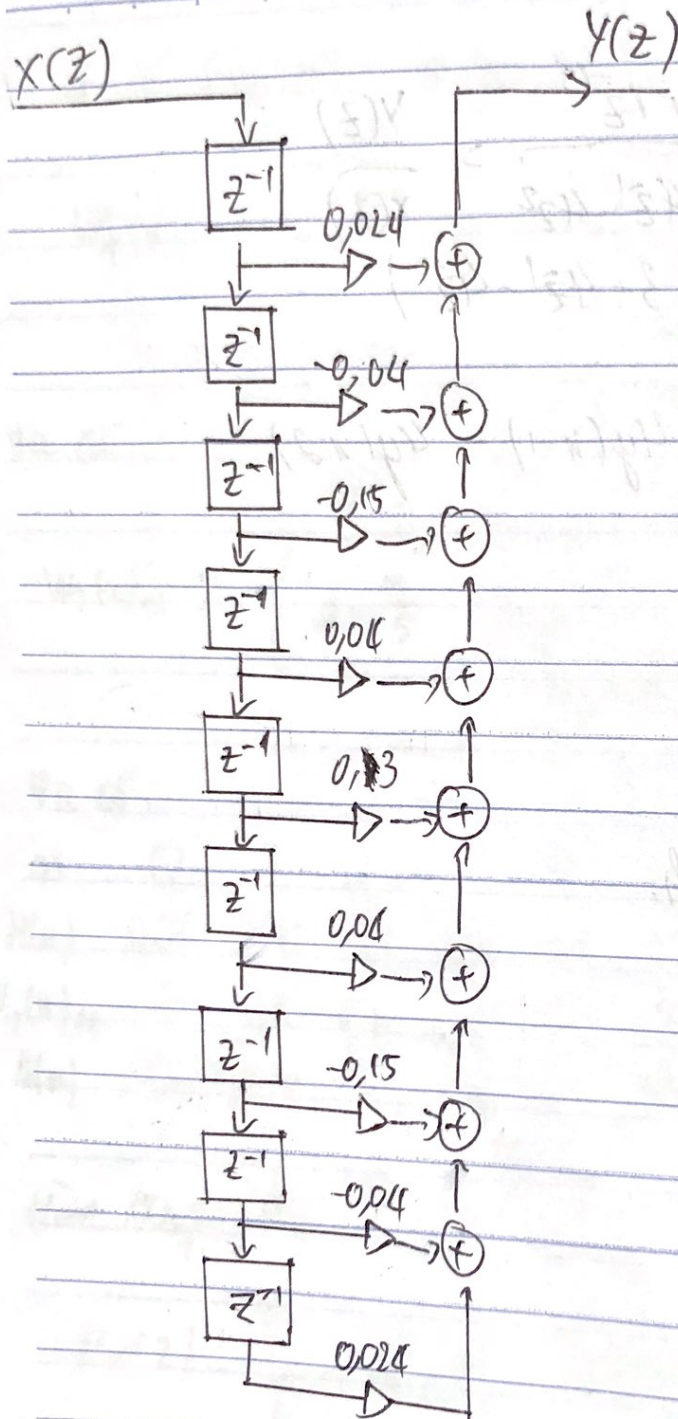 X(Z)
Y(Z)
z⁻¹
0,024
z⁻¹
-0,04
z⁻¹
-0,15
z⁻¹
0,04
z⁻¹
0,13
z⁻¹
0,04
z⁻¹
-0,15
z⁻¹
-0,04
z⁻¹
0,024